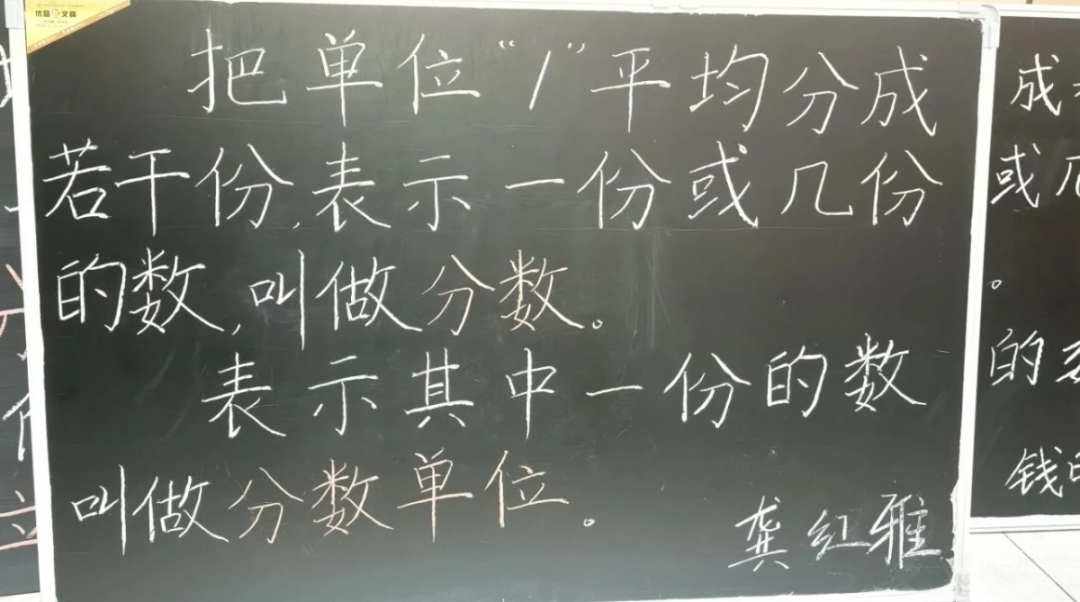 把单位“1”平均分成
若干份,表示一份或几份
的数,叫做分数。
表示其中一份的数
叫做分数单位。
龚红雅
文具
成
或几
。
的
钱